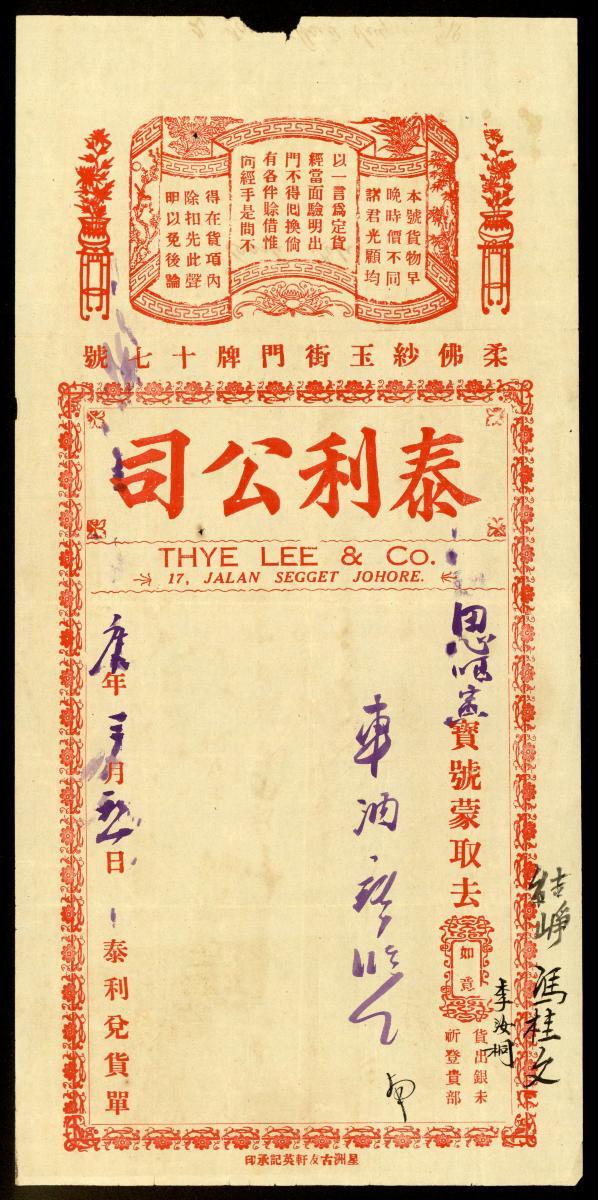 本號貨物早
晚時價不同
諸君光顧均
以一言為定貨
經當面驗明出
門不得囘換倘
有各伴賒借惟
向經手是問不
得在貨項內
除扣先此聲
明以免後論
柔佛紗玉街門牌十七號
泰利公司
THYE LEE & Co.
17, JALAN SEGGET JOHORE.
寶號蒙取去
如意
貨出銀未
祈登貴部
車油
結
馮桂文
李汝桐
年 月 日
泰利兌貨單
星洲古友軒英記承印